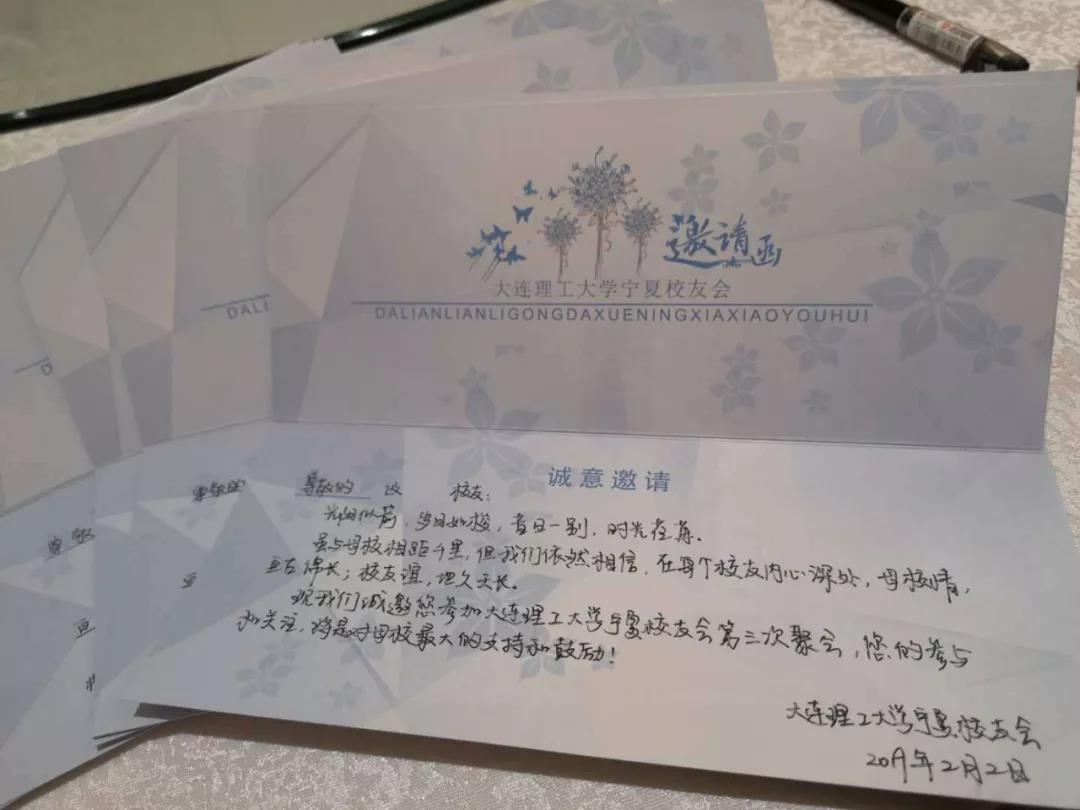 邀请函
大连理工大学宁夏校友会
DALIANLIANLIGONGDAXUENINGXIAXIAOYOUHUI
DALI
D
诚意邀请
尊敬的 校友：
光阴似箭，岁月如梭，昔日一别，时光荏苒。
虽与母校相距千里，但我们依然相信，在每个校友内心深处，母校情，
亘古绵长；校友谊，地久天长。
现我们诚邀您参加大连理工大学宁夏校友会第三次聚会，您的参与
和关注，将是对母校最大的支持和鼓励！
大连理工大学宁夏校友会
2019年2月2日
尊敬的
亘
尊敬
亘